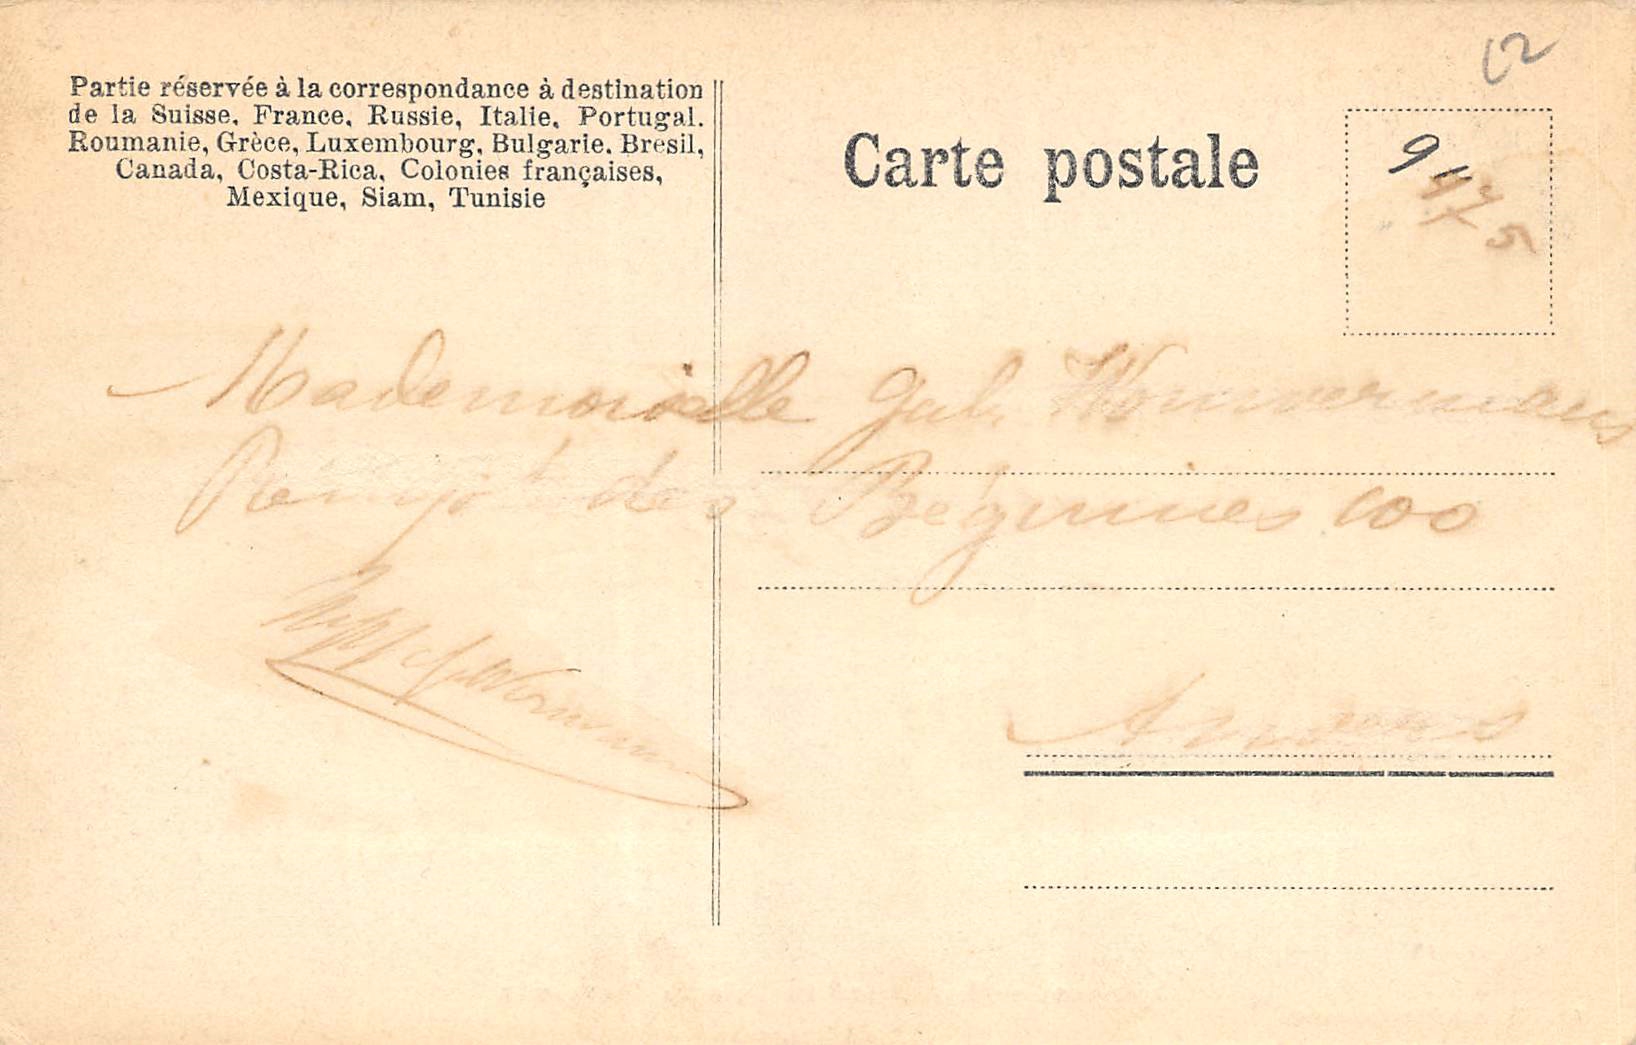 Partie réservée à la correspondance à destination
de la Suisse, France, Russie, Italie, Portugal.
Roumanie, Grèce, Luxembourg, Bulgarie. Bresil,
Canada, Costa-Rica, Colonies françaises,
Mexique, Siam, Tunisie
Carte postale
Mademoiselle Gab.
des Béguines 100
Anvers